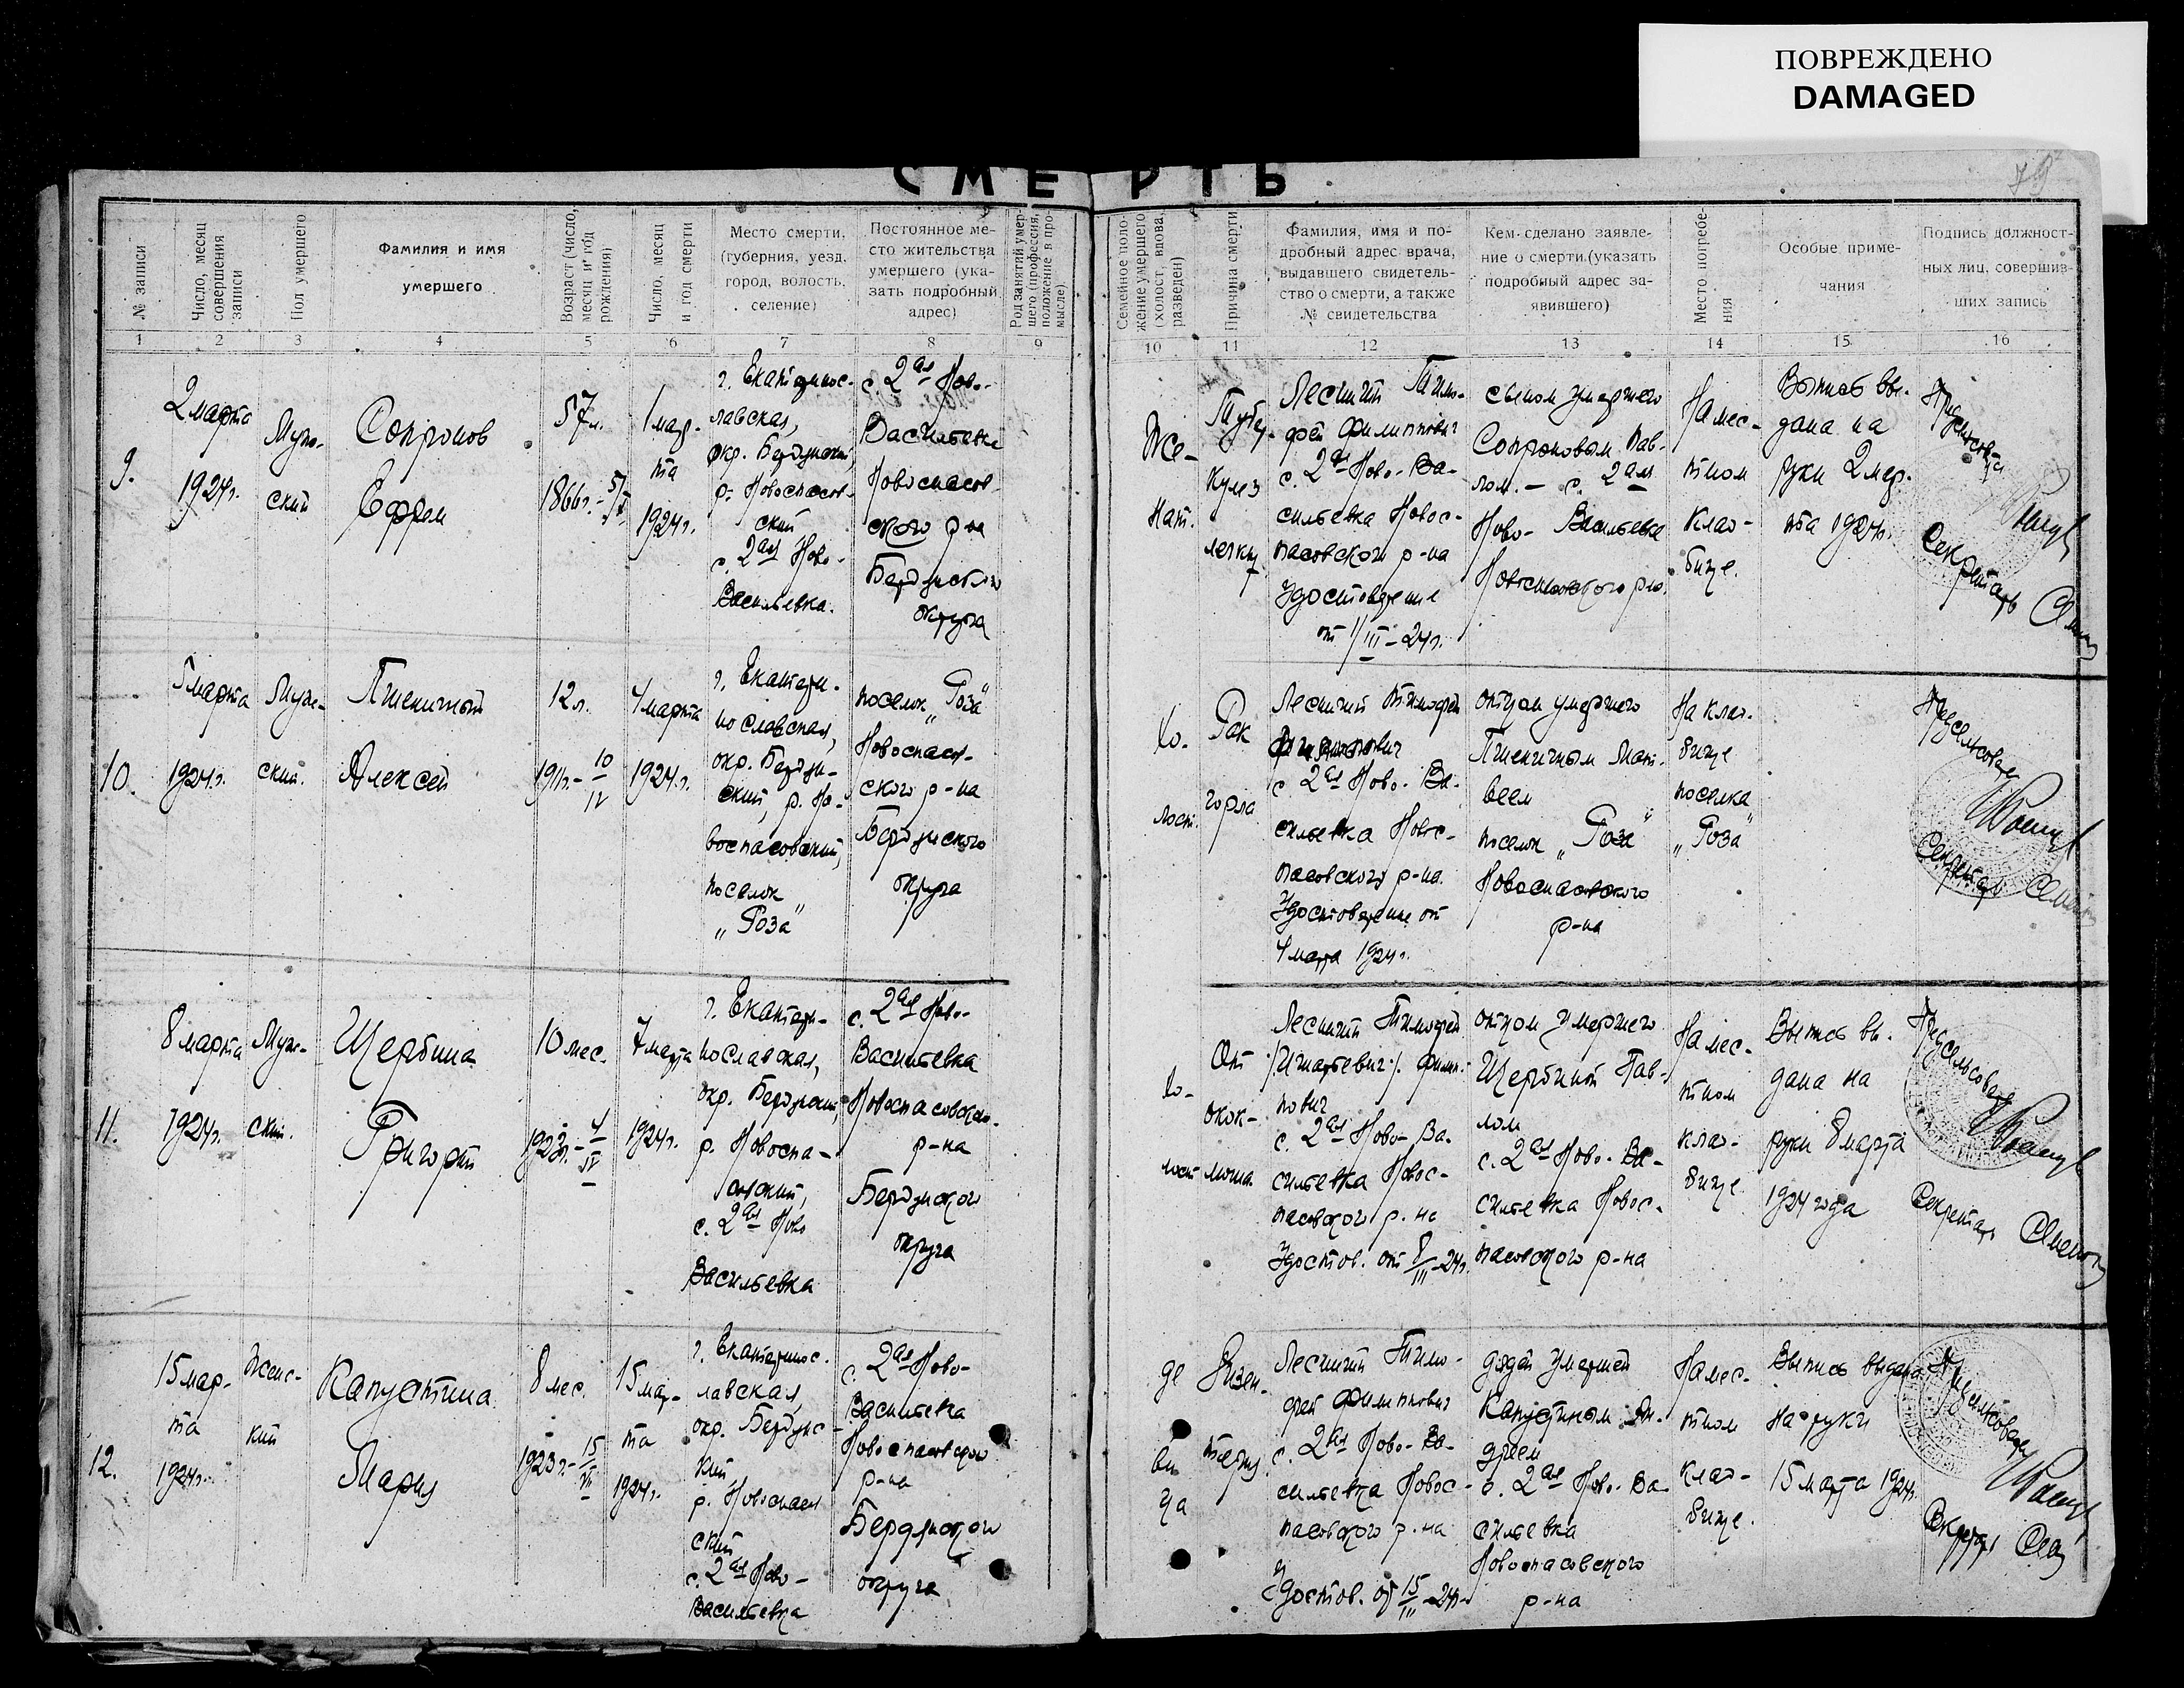 ПОВРЕЖДЕНО
DAMAGED
79
СМЕРТЬ
№ записи
Число, месяц
совершения
записи
Пол умершего
Фамилия и имя
умершего
Возраст (число,
месяц и год
рождения)
Число, месяц
и год смерти
Место смерти.
(губерния, уезд,
город, волость,
селение)
Постоянное ме-
сто жительства
умершего (ука-
зать подробный
адрес)
Род занятий умер-
шего (профессия,
положение в про-
мысле)
Семейное поло-
жение умершего
(холост, вдова,
разведен)
Причина смерти
Фамилия, имя и по-
дробный адрес врача,
выдавшего свидетель-
ство о смерти, а также
№ свидетельства
Кем сделано заявле-
ние о смерти (указать
подробный адрес за-
явившего)
Место погребе-
ния
Особые приме-
чания
Подпись должност-
ных лиц, совершив-
ших запись
1 2 3 4 5 6 7 8 9 10 11 12 13 14 15 16
9.
2 марта
1924 г.
Муж-
ский
Сопронов
Ефрем
57 л.
1866 г.
1 мар-
та
1924 г.
г. Екатеринос-
лавская,
окр. Бердянский,
р. Новоспасов-
ский
с. 2ая Ново-
Васильевка.
с. 2ая Ново-
Васильевка
Новоспасов-
ского р-на
Бердянского
округа
Же-
нат.
Тубер-
кулез
легких
Лесний Тимо-
фей Филиппович
с. 2ая Ново-Ва-
сильевка Новос-
пасовского р-на
Удостоверение
от 1/III-24 г.
сыном умершего
Сопроновым Пав-
лом. - с. 2ая
Ново-Васильевка
Новоспасовского р-на.
На мес-
тном
клад-
бище.
Выпись вы-
дана на
руки 2 мар-
та 1924 г.
Секретарь
10.
5 марта
1924 г.
Муж-
ский.
Пшеничный
Алексей
12 л.
1911 г. - 10/IV
4 марта
1924 г.
г. Екатери-
нославская,
окр. Бердян-
ский, р. Но-
воспасовский,
поселок
„Роза"
поселок „Роза"
Новоспасов-
ского р-на
Бердянского
округа
Хо-
лост.
Рак
горла
Лесний Тимофей
Филиппович
с. 2ая Ново-Ва-
сильевка Новос-
пасовского р-на.
Удостоверение от
4 марта 1924 г.
отцом умершего
Пшеничным Мат-
веем
поселок „Роза"
Новоспасовского
р-на
На клад-
бище
поселка
„Роза"
Предсельсовета
Секретарь
11.
8 марта
1924 г.
Муж-
ский.
Щербина
Григорий
10 мес.
1923 г. - 4/IV
7 марта
1924 г.
г. Екатери-
нославская,
окр. Бердянский,
р. Новоспа-
совский,
с. 2ая Ново
Васильевка
с. 2ая Ново-
Васильевка
Новоспасовского
р-на
Бердянского
округа
Хо-
лост
От
окок-
люша.
Лесний Тимофей
/:Игнатьевич:/. Филип-
пович
с. 2ая Ново-Ва-
сильевка Новос-
пасовского р-на
Удостов. от 8/III-24 г.
отцом умершего
Щербиной Пав-
лом
с. 2ая Ново-Ва-
сильевка Новос-
пасовского р-на
На мес-
тном
клад-
бище.
Выпись вы-
дана на
руки 8 марта
1924 года
Предсельсовета
Секретарь
12.
15 мар-
та
1924 г.
Женс-
кий
Капустина
Мария
8 мес.
1923 г. - 15/VII
15 мар-
та
1924 г.
г. Екатеринос-
лавская,
окр. Бердянс-
кий,
р. Новоспасов-
ский
с. 2ая Ново-
Васильевка
с. 2ая Ново-
Васильевка
Новоспасовского
р-на
Бердянского
округа
де
ви
ца
Дизен-
терия.
Лесний Тимо-
фей Филиппович
с. 2ая Ново-Ва-
сильевка Новос-
пасовского р-на
Удостов. от 15/III-24 г.
дядей умершей
Капустиным Ан-
дреем
с. 2ая Ново-Ва-
сильевка
Новоспасовского
р-на
На мес-
тном
клад-
бище.
Выпись выдана
на руки
15 марта 1924 г.
Предсельсовета
Секретарь